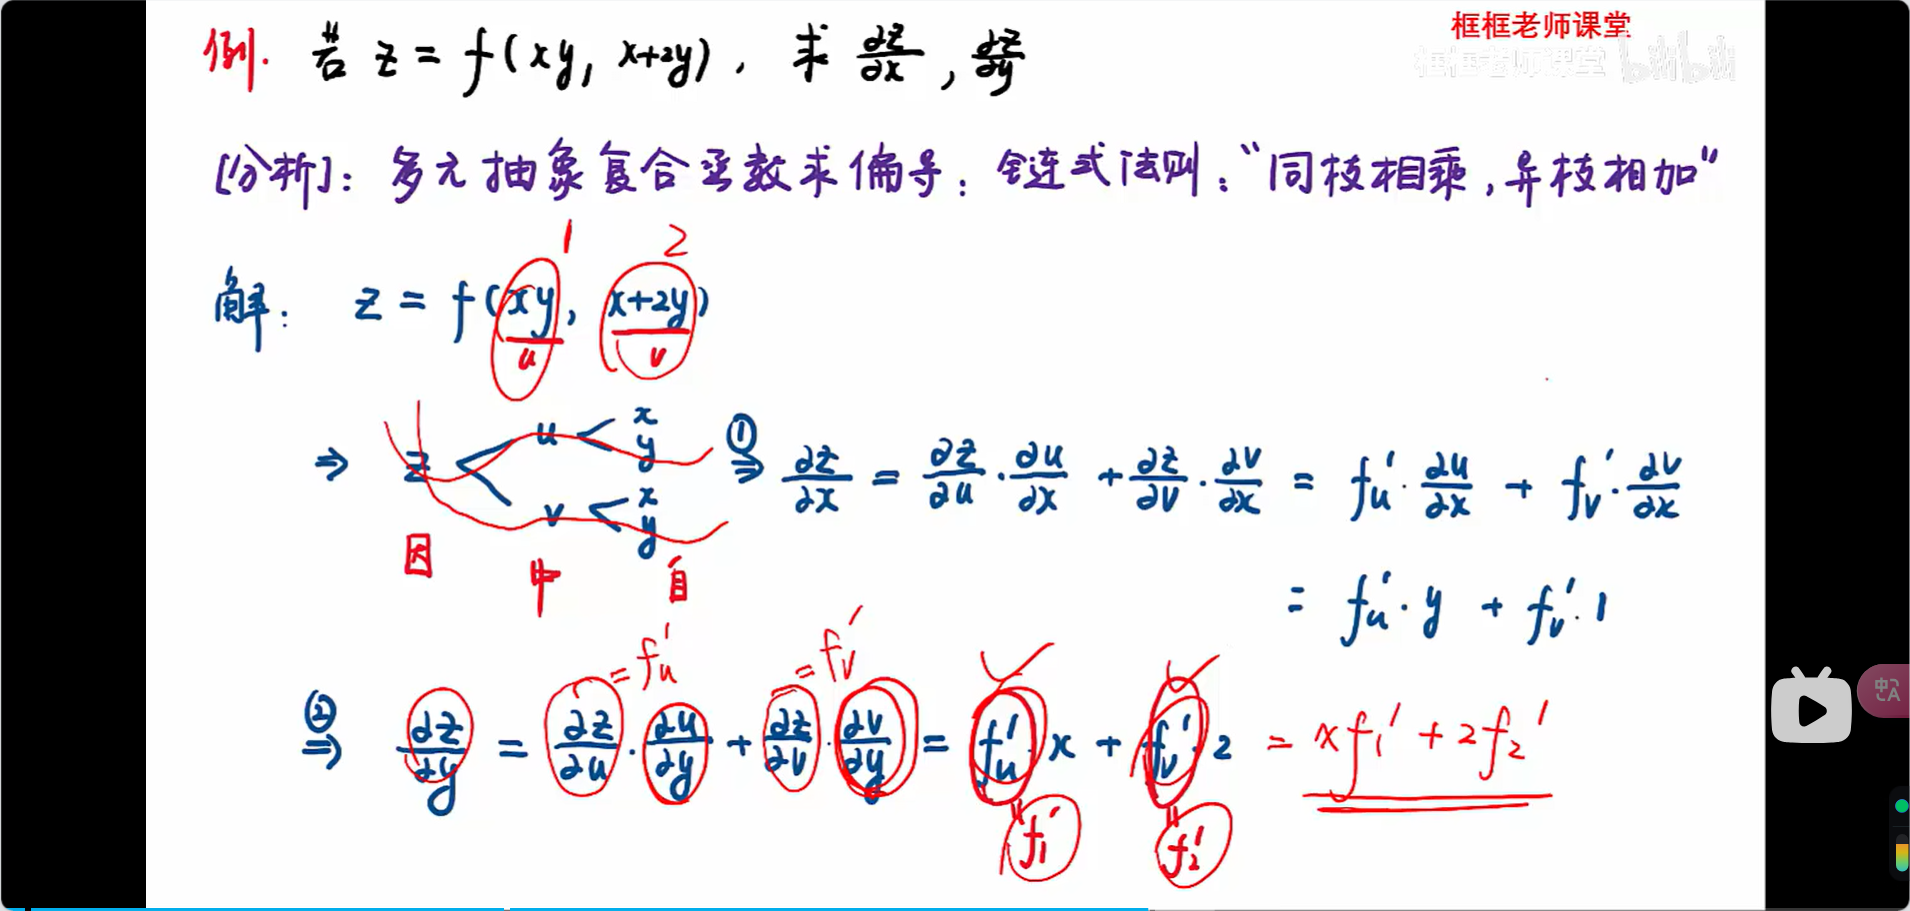 框框老师课堂
框框老师课堂 bilibili
例. 若 z = f(xy, x+2y), 求 ∂z/∂x, ∂z/∂y
[分析]: 多元抽象复合函数求偏导: 链式法则: “同枝相乘, 异枝相加”
1 2
解: z = f(xy, x+2y)
u v
⇒ z < u < x y
v < x y
因 中 自
① ⇒ ∂z/∂x = ∂z/∂u · ∂u/∂x + ∂z/∂v · ∂v/∂x = fu′ · ∂u/∂x + fv′ · ∂v/∂x
= fu′ · y + fv′ · 1
= fu′ = fv′
② ⇒ ∂z/∂y = ∂z/∂u · ∂u/∂y + ∂z/∂v · ∂v/∂y = fu′ · x + fv′ · 2 = xf1′ + 2f2′
= f1′ = f2′
中A